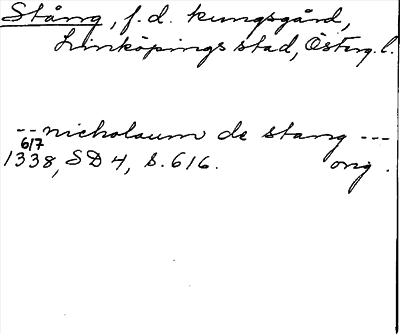 Stång, f.d. kungsgård,
Linköpings stad, Österg.l.
-- nicholaum de stang ---
6/7
1338, SD 4, s. 616. orig.